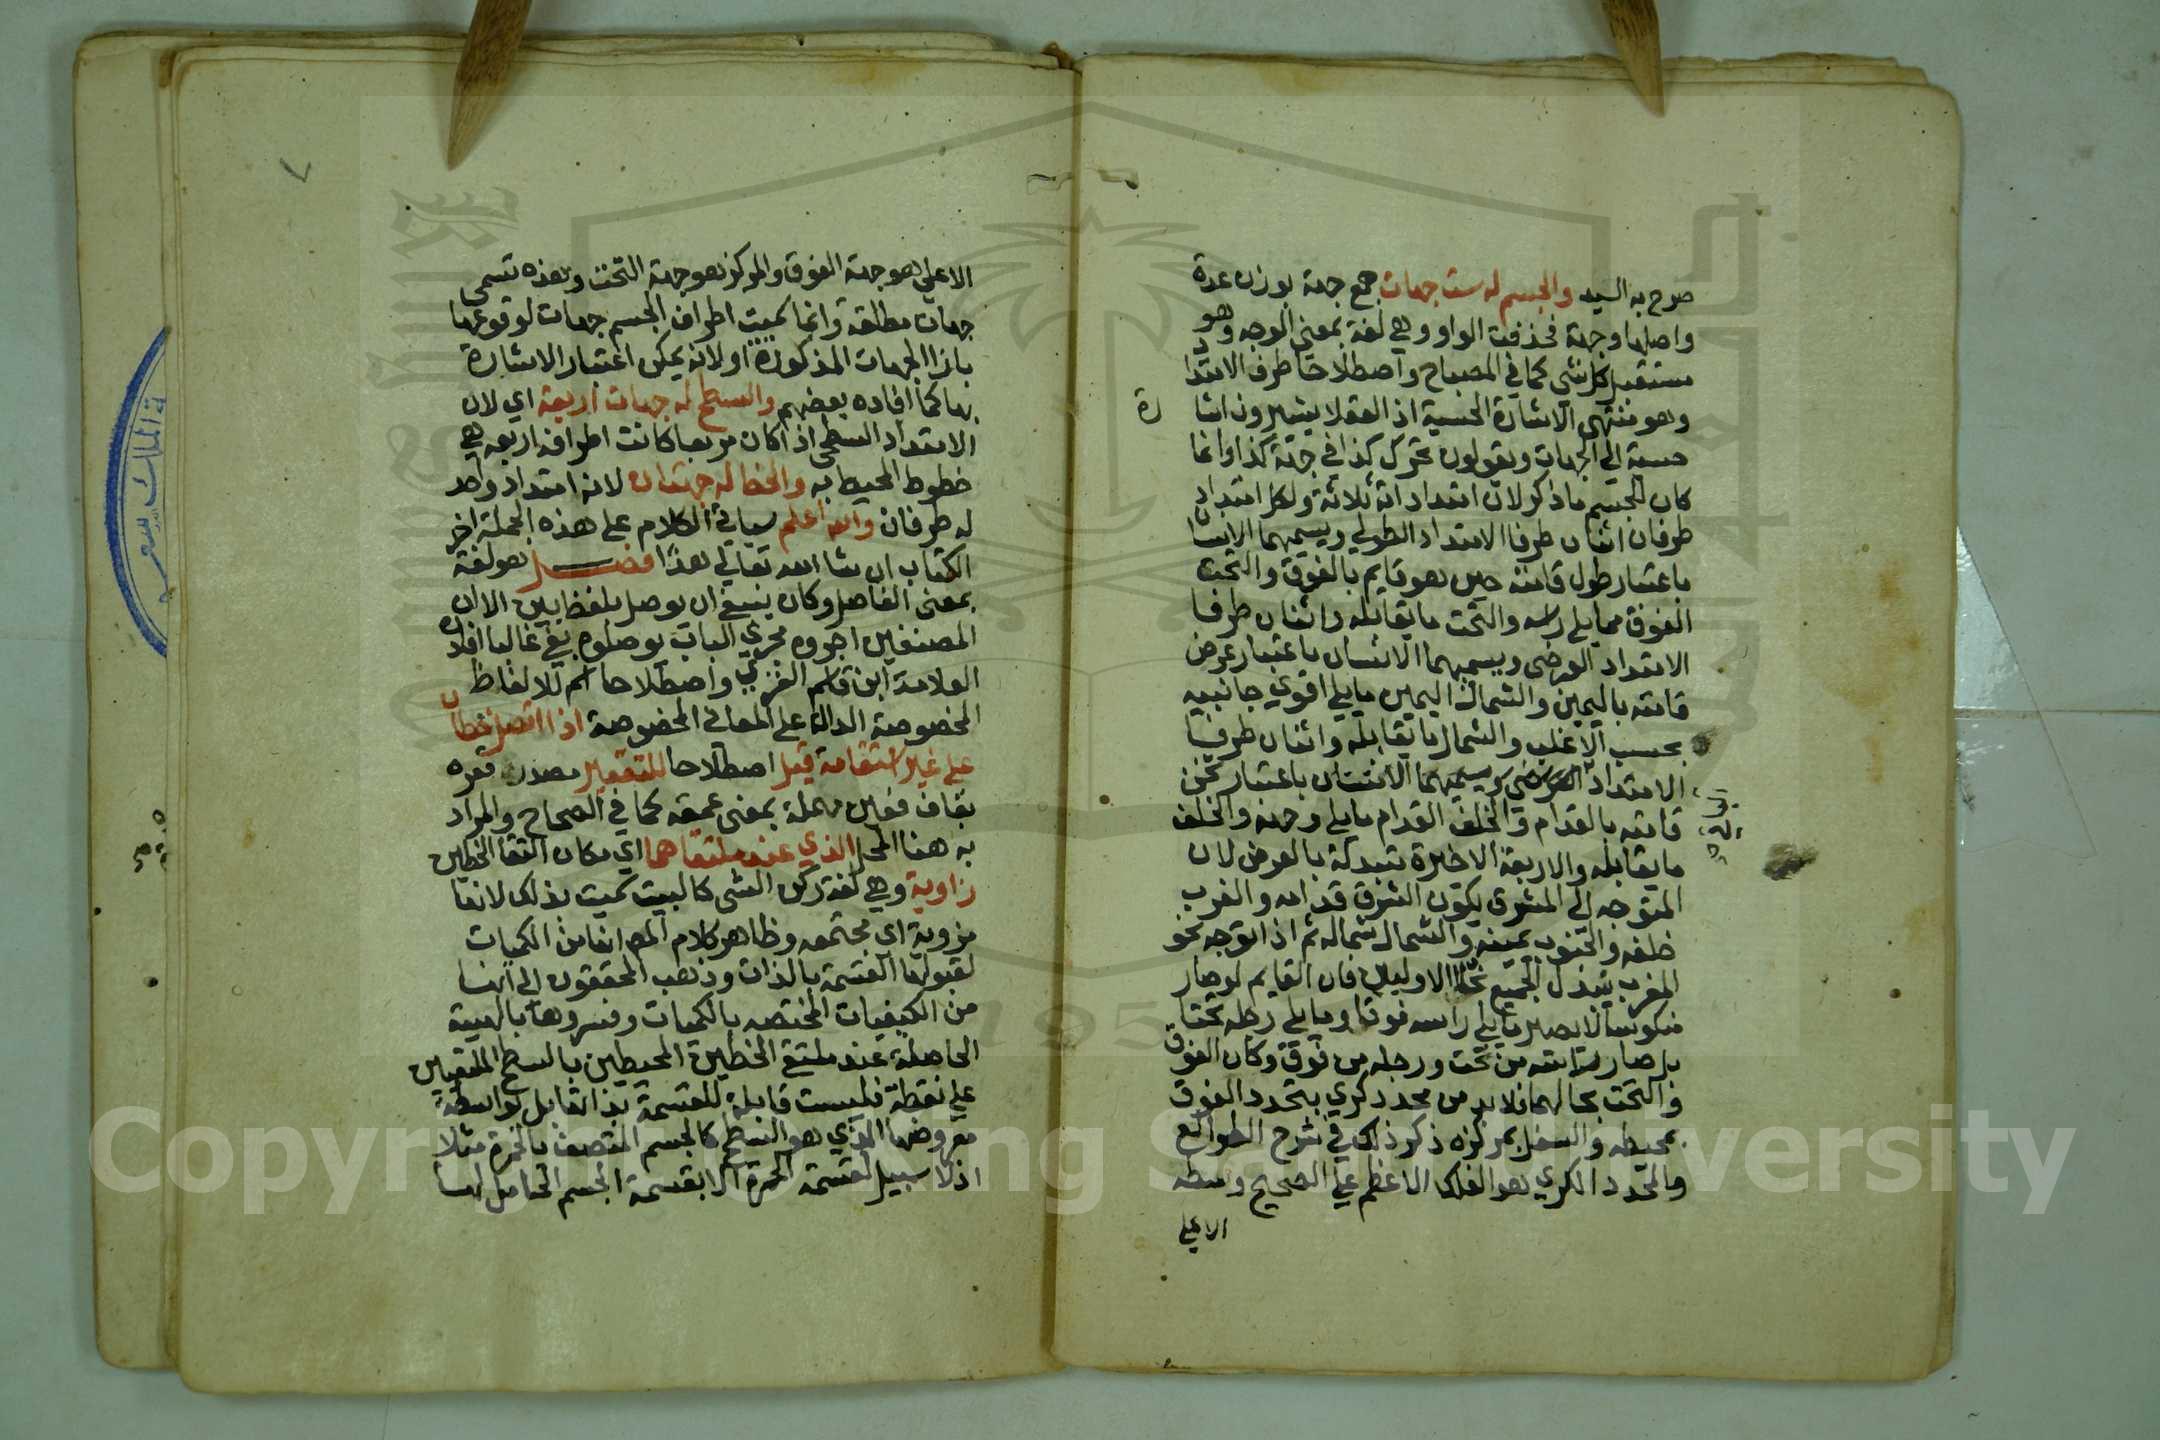 صرح به السيد والجسم له ست جهات جمع جهة بوزن عدة
واصلها وجهة فحذفت الواو وهي لغة بمعنى الوجه وهو
مستقبل كل شي كما في المصباح واصطلاحا طرف الامتداد
وهو منتهى الاشارة الحسية اذ العقلا يشيرون اشارة
حسية الي الجهات ويقولون تحرك كذا في جهة كذا وانما
كان للجسم ما ذكر لان امتداداته ثلاثة ولكل امتداد
طرفان اثنان طرفا الامتداد الطولي ويسميهما الانسان
باعتبار طول قامته حين هو قايم بالفوق والتحت
الفوق مما يلي راسه والتحت ما يقابله واثنان طرفا
الامتداد العرضي ويسميهما الانسان باعتبار عرض
قامته باليمين والشمال اليمين ما يلي اقوي جانبيه
بحسب الاغلب والشمال ما يقابله واثنان طرفا
الامتداد ويسميهما الانسان باعتبار ثخن
قامته بالقدام والخلف القدام ما يلي وجهه والخلف
ما يقابله والاربعة الاخيرة تبدلة بالعرض لان
المتوجه الي المشرق يكون المشرق قدامه والغرب
خلفه والجنوب يمينه والشمال شماله ثم اذا توجه نحو
المغرب يتبدل الجميع الاوليين فان القايم لو صار
منكوسا لا يصير ما يلي راسه فوقا وما يلي رجله تحتا
بل صار راسه من تحت ورجله من فوق وكان الفوق
والتحت بحالهما فلا بد من محدد كري يتحدد الفوق
بمحيطه والسفل بمركزه ذكر ذلك في شرح الطوالع
والمحدد الكري هو الفلك الاعظم علي الصحيح وسطه
الاعلي
الاعلي هو جهة الفوق والمركز هو جهة التحت وهذه تسمى
جهات مطلقة وانما سميت اطراف الجسم جهات لوقوعها
بازا الجهات المذكورة او لانه يمكن اعتبار الاشارة
بها كما افاده بعضهم والسطح له جهات اربعة اي لان
الامتداد السطحي اذا كان مربعا كانت اطرافه اربعه هي
خطوط المحيط به والخط له جهتان لانه امتداد واحد
له طرفان والله اعلم سياتي الكلام علي هذه الجملة اخر
الكتاب ان شا الله تعالي هذا فصل هو لغة
بمعنى الفاصل وكان ينبغي ان يوصل بلفظ بين الا ان
المصنفين اجروه مجري الباب بوصلوه بفي غالبا افاده
العلامة ابن قاسم الغزي واصطلاحا اسم للالفاظ
المخصوصة الدالة علي المعاني المخصوصة اذا اتصل خطان
علي غير استقامة قيل اصطلاحا للتقعير مصدر قعره
بقاف فعين مهملة بمعنى عمقه كما في الصحاح والمراد
به هنا المحل الذي عند ملتقاهما اي مكان التقا الخطين
زاوية وهي لغة ركن الشي كالبيت سميت بذلك لانها
مزوية اي مجتمعه وظاهر كلام المص انها من الكميات
لقبولها القسمة بالذات وذهب المحققون الي انها
من الكيفيات المختصه بالكميات وفسروها بالهيئة
الحاصلة عند ملتقي الخطين المحيطين بالسطح الملتقيين
علي نقطة فليست قابلة للقسمة بذاتها بل بواسطة
معروضها الذي هو السطح كالجسم المتصف بالحمرة مثلا
اذ لا سبيل لقسمة الحمرة الا بقسمة الجسم الحامل لها
Copyright © King Saud University
1957